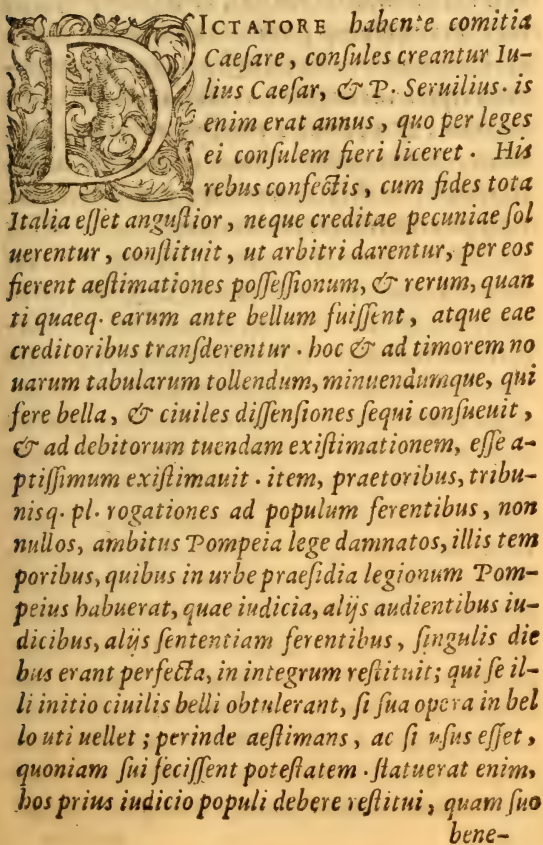 DICTATORE habente comitia
Caesare, consules creantur Iu-
lius Caesar, & P. Seruilius. is
enim erat annus, quo per leges
ei consulem fieri liceret. His
rebus confectis, cum fides tota
Italia esset angustior, neque creditae pecuniae sol
uerentur, constituit, ut arbitri darentur, per eos
fierent aestimationes possessionum, & rerum, quan
ti quaeq. earum ante bellum fuissent, atque eae
creditoribus transderentur. hoc & ad timorem no
uarum tabularum tollendum, minuendumque, qui
fere bella, & ciuiles dissensiones sequi consueuit,
& ad debitorum tuendam existimationem, esse a-
ptissimum existimauit. item, praetoribus, tribu-
nisq. pl. rogationes ad populum ferentibus, non
nullos, ambitus Pompeia lege damnatos, illis tem
poribus, quibus in urbe praesidia legionum Pom-
peius habuerat, quae iudicia, alijs audientibus iu-
dicibus, alijs sententiam ferentibus, singulis die
bus erant perfecta, in integrum restituit; qui se il-
li initio ciuilis belli obtulerant, si sua opera in bel
lo uti uellet; perinde aestimans, ac si usus esset,
quoniam sui fecissent potestatem. statuerat enim,
hos prius iudicio populi debere restitui, quam suo
bene-